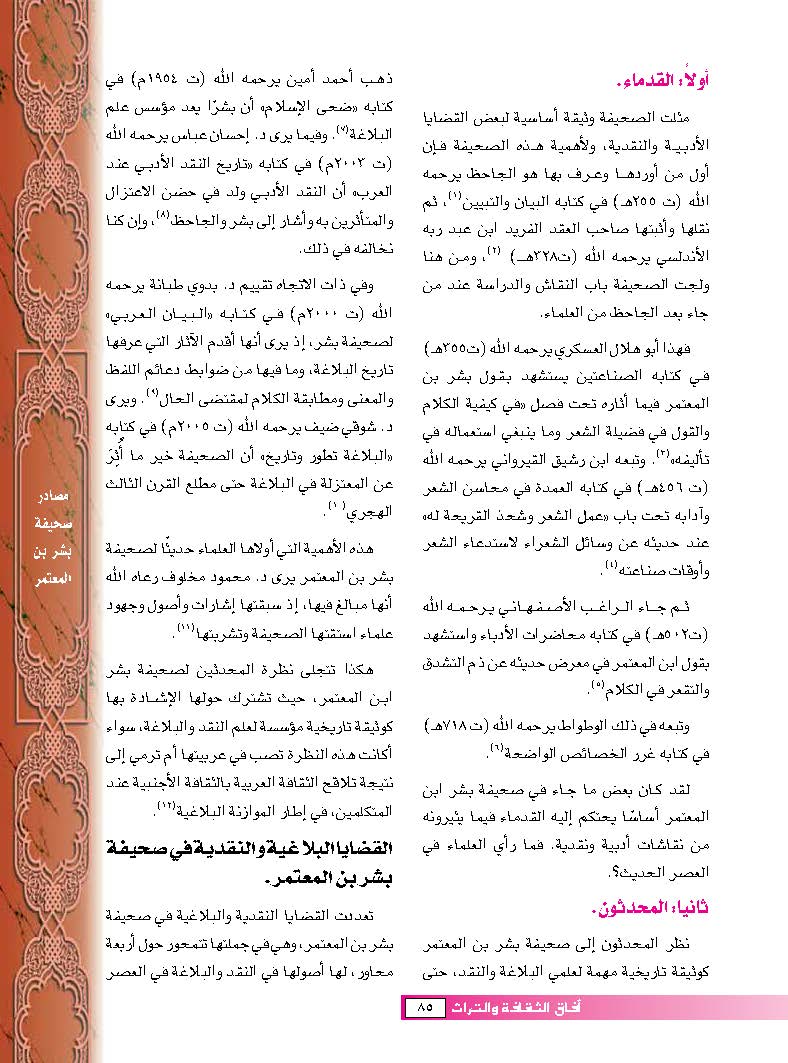 أولاً: القدماء.
مثلت الصحيفة وثيقة أساسية لبعض القضايا
الأدبية والنقدية، ولأهمية هذه الصحيفة فإن
أول من أوردها وعرف بها هو الجاحظ يرحمه
الله (ت ٢٥٥هـ) في كتابه البيان والتبيين(١)، ثم
نقلها وأثبتها صاحب العقد الفريد ابن عبد ربه
الأندلسي يرحمه الله (ت٣٢٨هـ) (٢)، ومن هنا
ولجت الصحيفة باب النقاش والدراسة عند من
جاء بعد الجاحظ من العلماء.
فهذا أبو هلال العسكري يرحمه الله (ت٣٥٥هـ)
في كتابه الصناعتين يستشهد بقول بشر بن
المعتمر فيما أثاره تحت فصل «في كيفية الكلام
والقول في فضيلة الشعر وما ينبغي استعماله في
تأليفه»(٣). وتبعه ابن رشيق القيرواني يرحمه الله
(ت ٤٥٦هـ) في كتابه العمدة في محاسن الشعر
وآدابه تحت باب «عمل الشعر وشحذ القريحة له»
عند حديثه عن وسائل الشعراء لاستدعاء الشعر
وأوقات صناعته(٤).
ثم جاء الراغب الأصفهاني يرحمه الله
(ت٥٠٢هـ) في كتابه محاضرات الأدباء واستشهد
بقول ابن المعتمر في معرض حديثه عن ذم التشدق
والتقعر في الكلام(٥).
وتبعه في ذلك الوطواط يرحمه الله (ت ٧١٨هـ)
في كتابه غرر الخصائص الواضحة(٦).
لقد كان بعض ما جاء في صحيفة بشر ابن
المعتمر أساسًا يحتكم إليه القدماء فيما يثيرونه
من نقاشات أدبية ونقدية. فما رأي العلماء في
العصر الحديث؟.
ثانيا: المحدثون.
نظر المحدثون إلى صحيفة بشر بن المعتمر
كوثيقة تاريخية مهمة لعلمي البلاغة والنقد، حتى
ذهب أحمد أمين يرحمه الله (ت ١٩٥٤م) في
كتابه «ضحى الإسلام» أن بشرًا يعد مؤسس علم
البلاغة(٧). وفيما يرى د. إحسان عباس يرحمه الله
(ت ٢٠٠٣م) في كتابه «تاريخ النقد الأدبي عند
العرب» أن النقد الأدبي ولد في حضن الاعتزال
والمتأثرين به وأشار إلى بشر والجاحظ(٨)، وإن كنا
نخالفه في ذلك.
وفي ذات الاتجاه تقييم د. بدوي طبانة يرحمه
الله (ت ٢٠٠٠م) في كتابه «البيان العربي»
لصحيفة بشر، إذ يرى أنها أقدم الآثار التي عرفها
تاريخ البلاغة، وما فيها من ضوابط دعائم اللفظ،
والمعنى ومطابقة الكلام لمقتضى الحال(٩). ويرى
د. شوقي ضيف يرحمه الله (ت ٢٠٠٥م) في كتابه
«البلاغة تطور وتاريخ» أن الصحيفة خير ما أُثِرَ
عن المعتزلة في البلاغة حتى مطلع القرن الثالث
الهجري(١٠).
هذه الأهمية التي أولاها العلماء حديثًا لصحيفة
بشر بن المعتمر يرى د. محمود مخلوف رعاه الله
أنها مبالغ فيها، إذ سبقتها إشارات وأصول وجهود
علماء استقتها الصحيفة وتشربتها(١١).
هكذا تتجلى نظرة المحدثين لصحيفة بشر
ابن المعتمر، حيث تشترك حولها الإشادة بها
كوثيقة تاريخية مؤسسة لعلم النقد والبلاغة، سواء
أكانت هذه النظرة تصب في عربيتها أم ترمي إلى
نتيجة تلاقح الثقافة العربية بالثقافة الأجنبية عند
المتكلمين، في إطار الموازنة البلاغية(١٢).
القضايا البلاغية والنقدية في صحيفة
بشر بن المعتمر.
تعددت القضايا النقدية والبلاغية في صحيفة
بشر بن المعتمر، وهي في جملتها تتمحور حول أربعة
محاور، لها أصولها في النقد والبلاغة في العصر
مصادر
صحيفة
بشر بن
المعتمر
آفاق الثقافة والتراث ٨٥